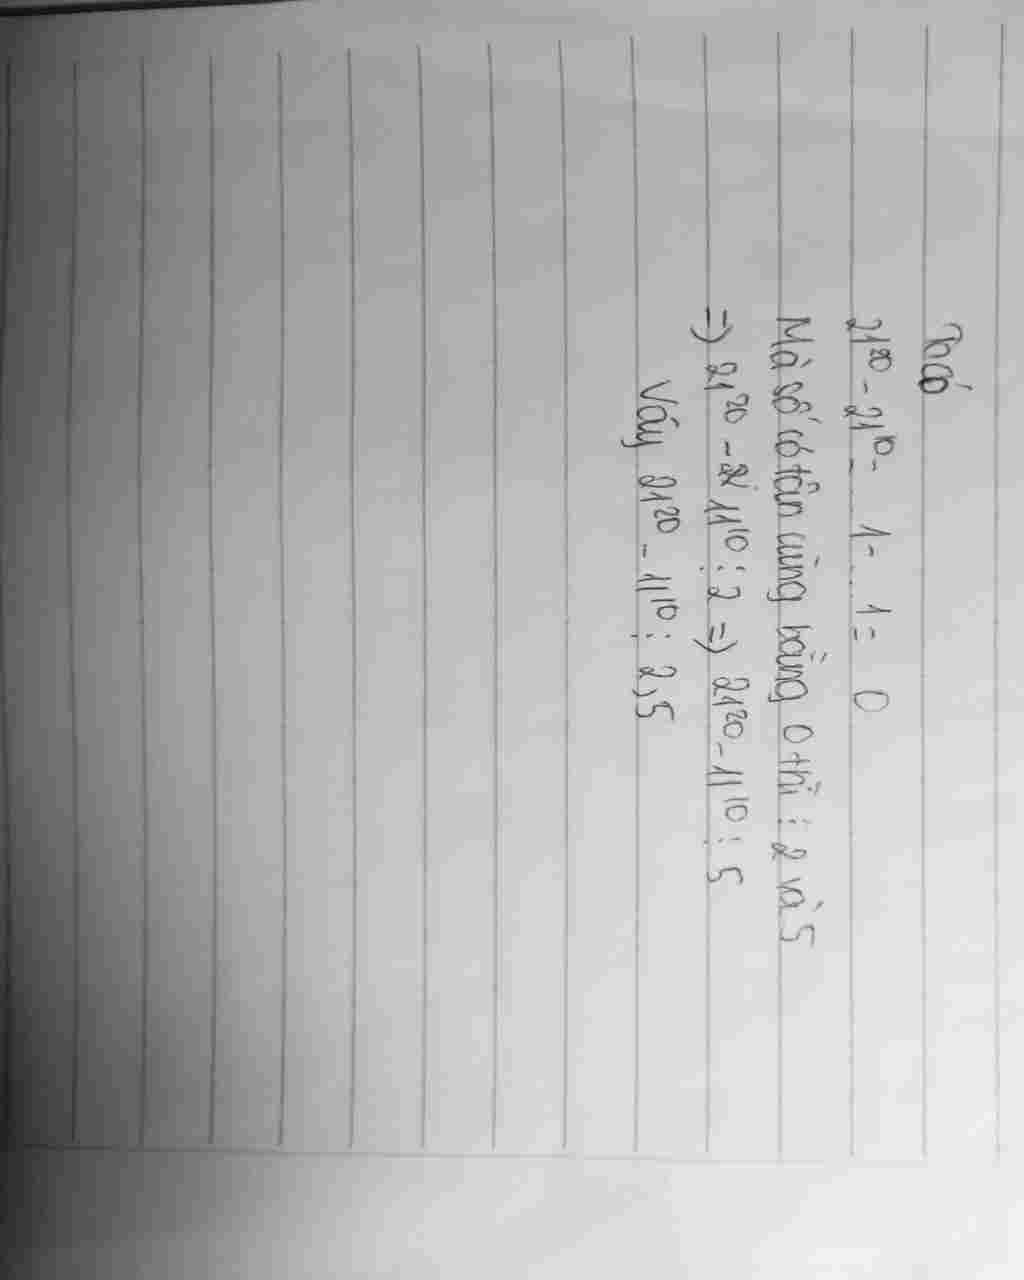 Ta có
21²⁰ - 21¹⁰ = ...1 - ...1 = 0
Mà số có tận cùng bằng 0 thì ⋮ 2 và 5
=> 21²⁰ - 11¹⁰ ⋮ 2 => 21²⁰ - 11¹⁰ ⋮ 5
Vậy 21²⁰ - 11¹⁰ ⋮ 2,5